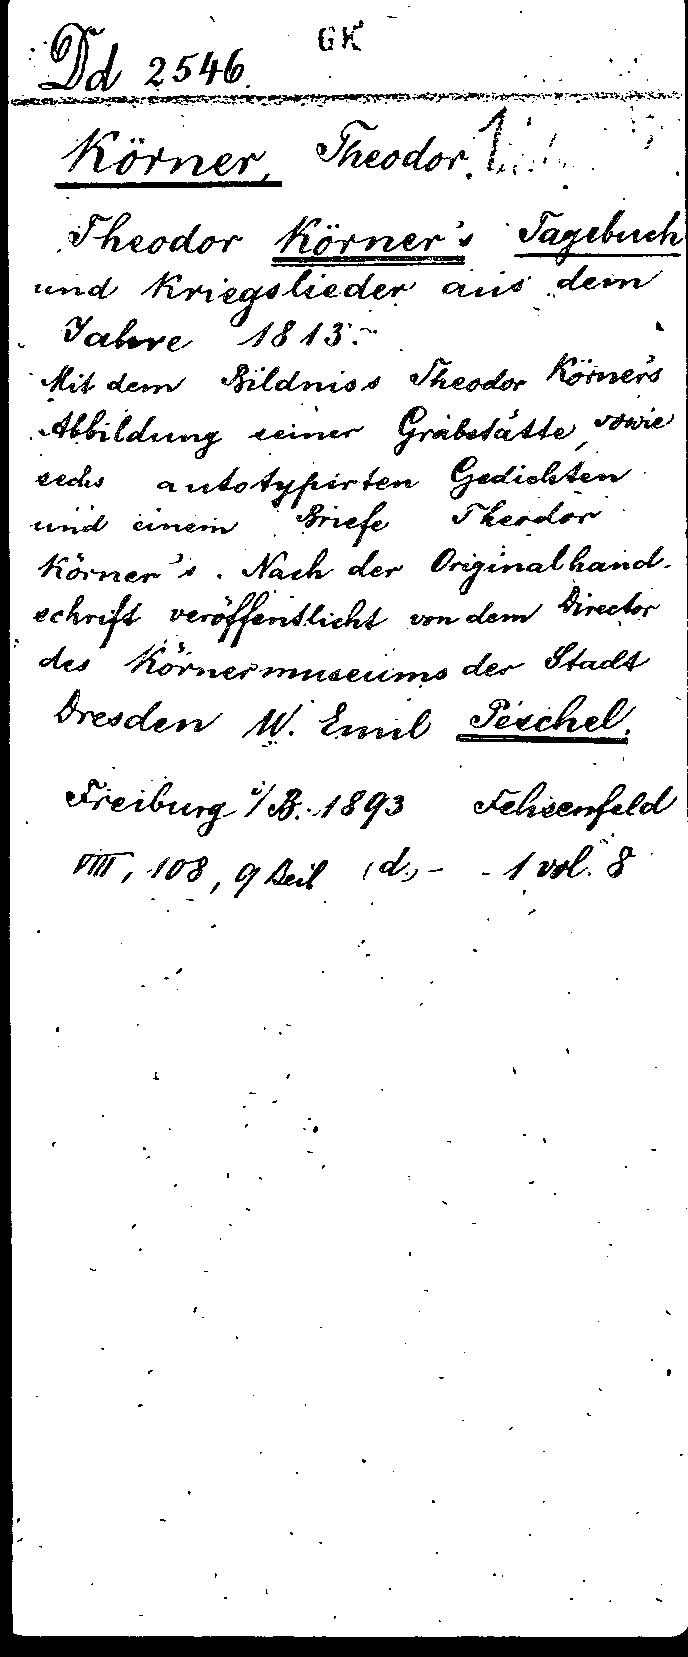 GK
Dd 2546.
Körner, Theodor.
Theodor Körner's Tagebuch
und Kriegslieder aus dem
Jahre 1813.-
Mit dem Bildniss Theodor Körner's
Abbildung seiner Grabstätte, sowie
sechs autotypirten Gedichten
und einem Briefe Theodor
Körner's. Nach der Originalhand-
schrift veröffentlicht von dem Director
des Körnermuseums der Stadt
Dresden W. Emil Peschel.
Freiburg i/B. 1893 Fehsenfeld
VIII, 108, 9 Beil (d.) - - 1 vol. 8